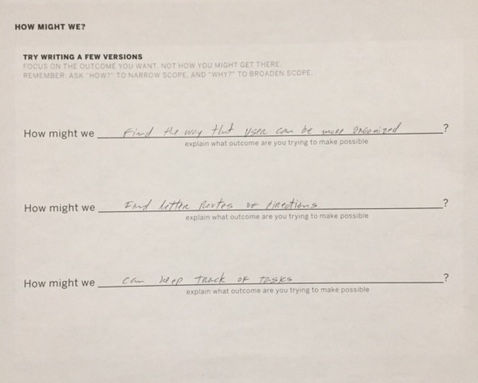 HOW MIGHT WE?
TRY WRITING A FEW VERSIONS
FOCUS ON THE OUTCOME YOU WANT, NOT HOW YOU MIGHT GET THERE.
REMEMBER: ASK "HOW?" TO NARROW SCOPE, AND "WHY?" TO BROADEN SCOPE.
How might we find the way that user can be more organized ?
explain what outcome are you trying to make possible
How might we Find better Routes or Directions ?
explain what outcome are you trying to make possible
How might we can keep Track of Tasks ?
explain what outcome are you trying to make possible